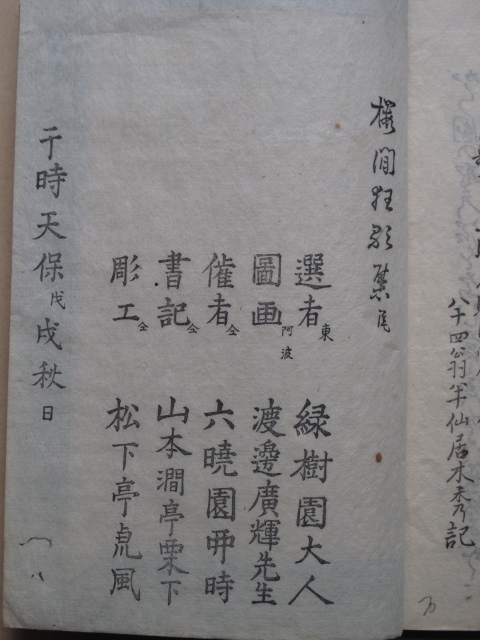 八十四翁半仙居木秀記
櫻間狂歌集尾
選者 東 緑樹園大人
圖画 阿波 渡邊廣輝先生
催者 仝 六曉園冊時
書記 仝 山本澗亭栗下
彫工 仝 松下亭虎風
于時天保戊戌秋日